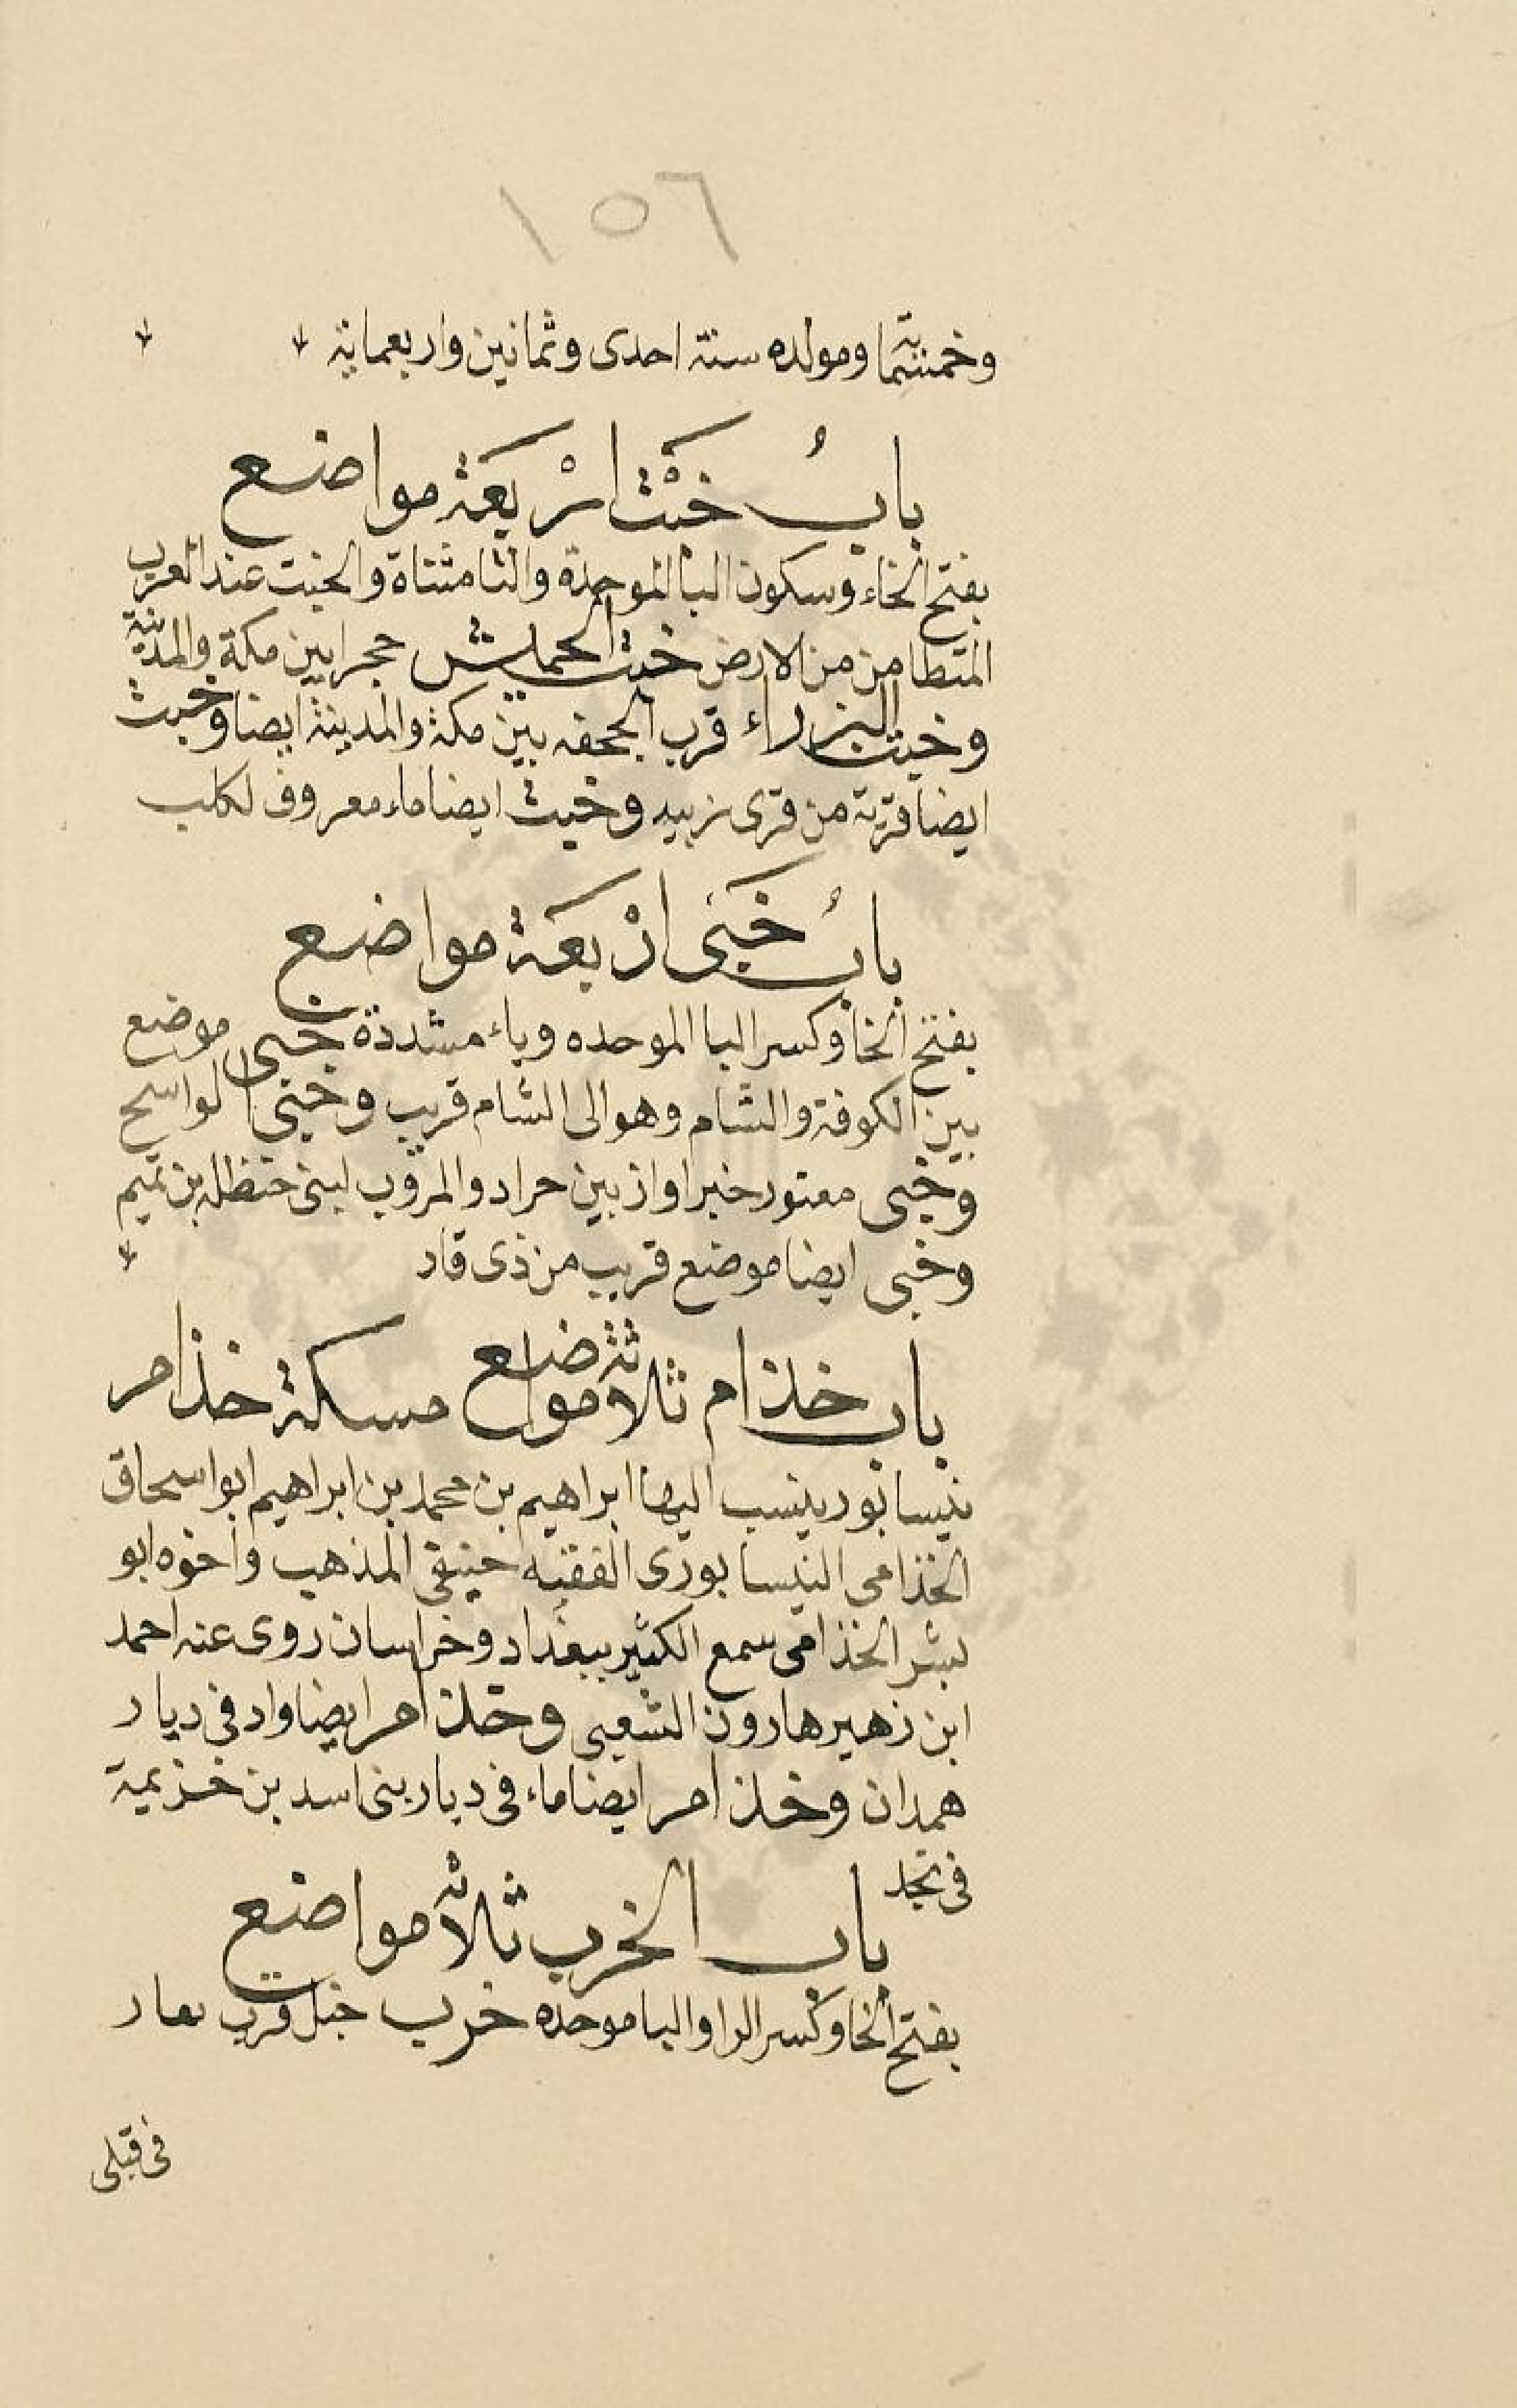 ١٥٦
وخمسمائة ومولده سنة احدى وثمانين واربعماية
بابُ خَبْت ارْبعَة مواضع
بفتح الخاء وسكون البا الموحدة والتا مثناة والخبت عند العرب
المتطامن من الارض خبت الجميش حجر ابين مكة والمدينة
وخبت البزراء قرب الجحفه بين مكة والمدينة ايضا وخبت
ايضا قرية من قرى زبيد وخبت ايضا ماء معروف لكلب
بابُ خَبَى ارْبعَة مواضع
بفتح الخا وكسر البا الموحده وياء مشددة خبى موضع
بين الكوفة والشام وهو الى الشام قريب وخبى الواسح
وخبى معتور خبراوان بين حراد والمروب لبنى حنظله بن تميم
وخبى ايضا موضع قريب من ذى قار
باب خذام ثلاثة مواضع مسكة خذام
نيسابور ينسب اليها ابراهيم بن محمد بن ابراهيم ابو اسحاق
الخذامى النيسابورى الفقيه حنيفى المذهب واخوه ابو
بشر الخذامى سمع الكثير ببغداد وخراسان روى عنه احمد
ابن زهير هارون الشعيبى وخذام ايضا واد فى ديار
همدان وخذام ايضا ماء فى ديار بنى اسد بن خزيمة
فى نجد
باب الخرب ثلاثة مواضع
بفتح الخا وكسر الرا والبا موحده خرب جبل قرب تعار
فى قبلى